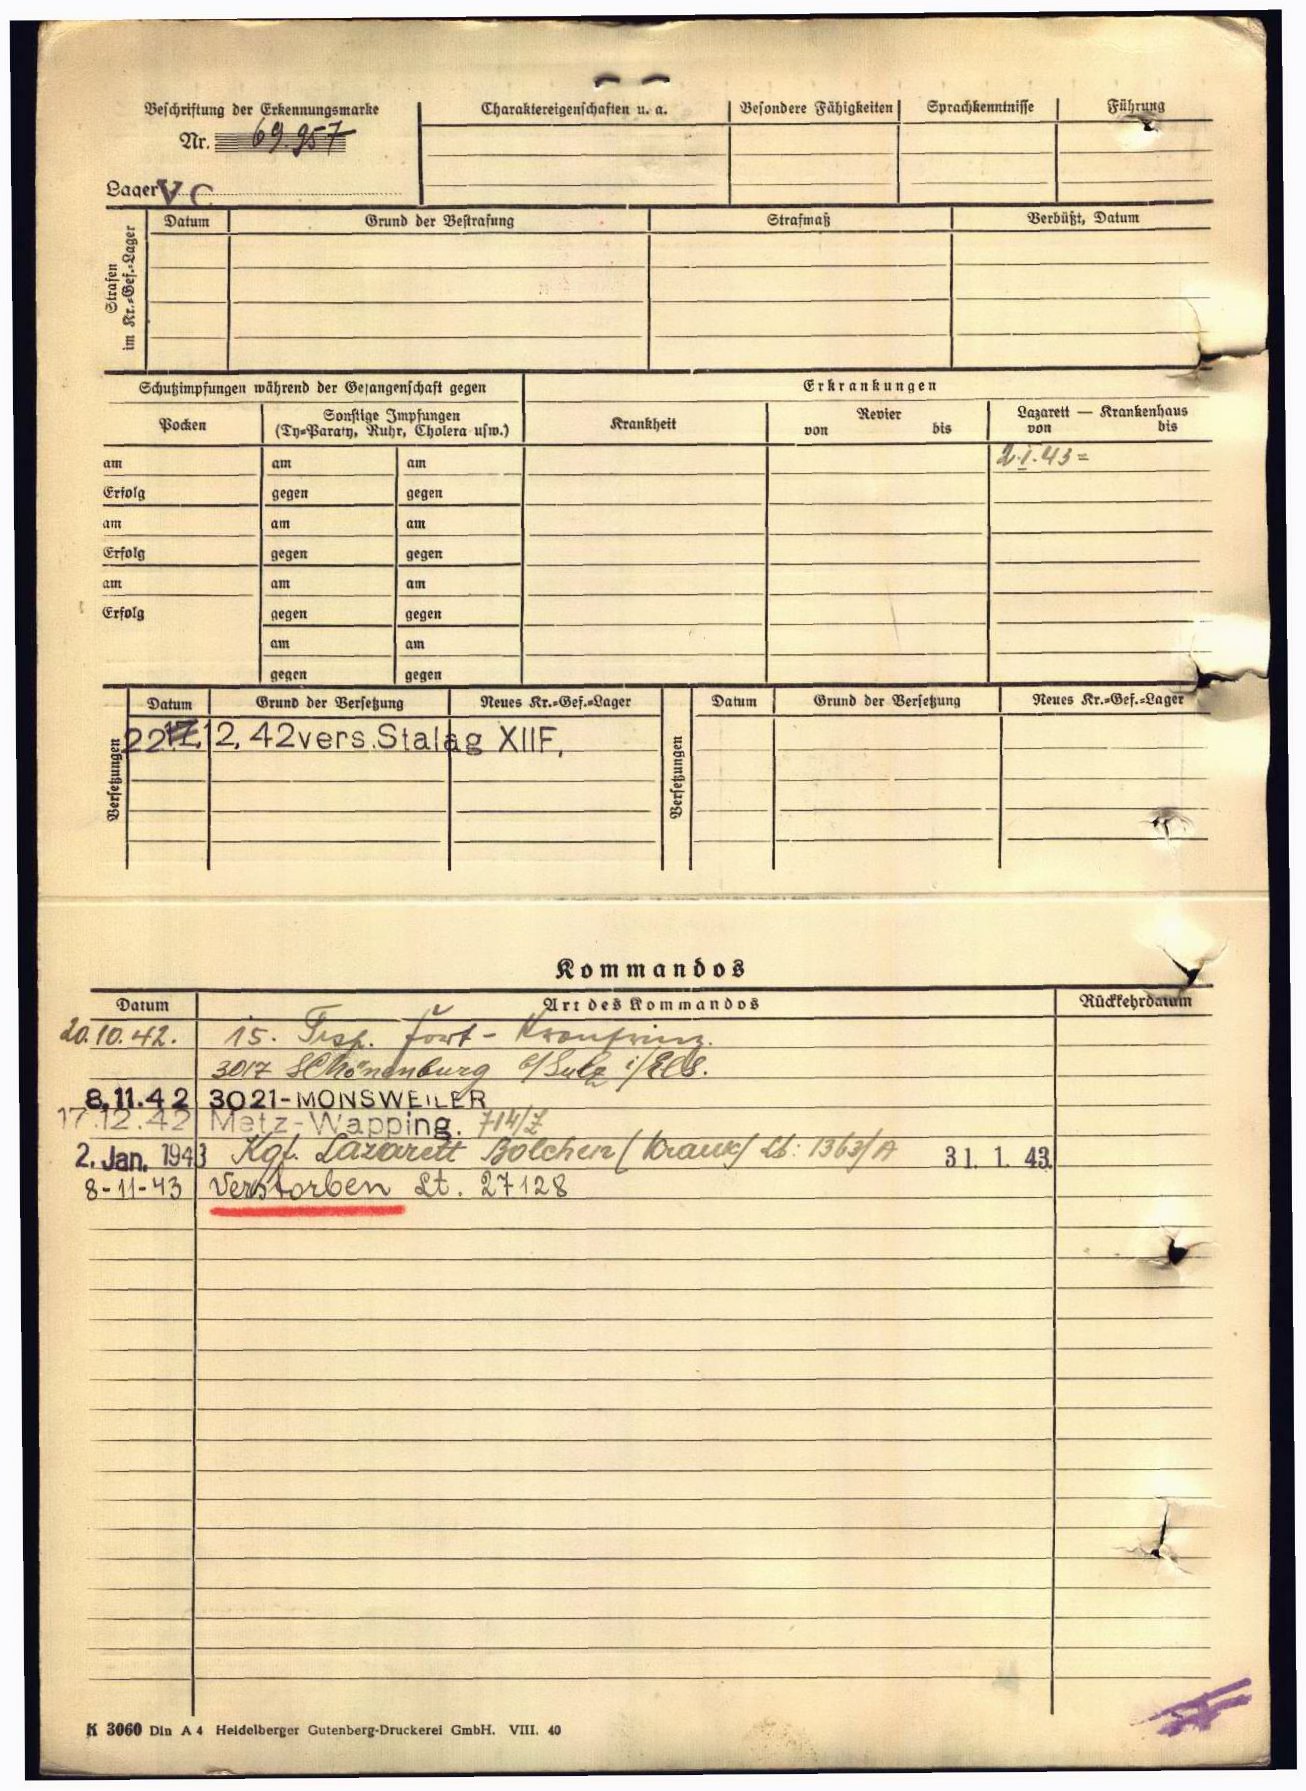 Beschriftung der Erkennungsmarke
Nr. 69.957
Lager V C
Charaktereigenschaften u. a.
Besondere Fähigkeiten
Sprachkenntnisse
Führung
Strafen im Kr.=Gef.=Lager
Datum
Grund der Bestrafung
Strafmaß
Verbüßt, Datum
Schutzimpfungen während der Gefangenschaft gegen
Erkrankungen
Pocken
Sonstige Impfungen
(Ty=Paraty, Ruhr, Cholera usw.)
Krankheit
Revier
von bis
Lazarett — Krankenhaus
von bis
am am am
2.I.43=
Erfolg gegen gegen
am am am
Erfolg gegen gegen
am am am
Erfolg gegen gegen
am am
gegen gegen
Versetzungen
Datum
Grund der Versetzung
Neues Kr.=Gef.=Lager
Versetzungen
Datum
Grund der Versetzung
Neues Kr.=Gef.=Lager
22. 12. 42 vers. Stalag XIIF,
Kommandos
Datum
Art des Kommandos
Rückkehrdatum
20.10.42. 15.
3017 Schönenburg b/Sulz i/Els.
8.11.42 3021-MONSWEILER
17.12.42 Metz-Wapping. 714/Z
2. Jan. 1943 Kgf. Lazarett Bolchen (krank) Lt: 1363/A 31. 1. 43.
8-11-43 Verstorben Lt. 27128
K 3060 Din A 4 Heidelberger Gutenberg-Druckerei GmbH. VIII. 40